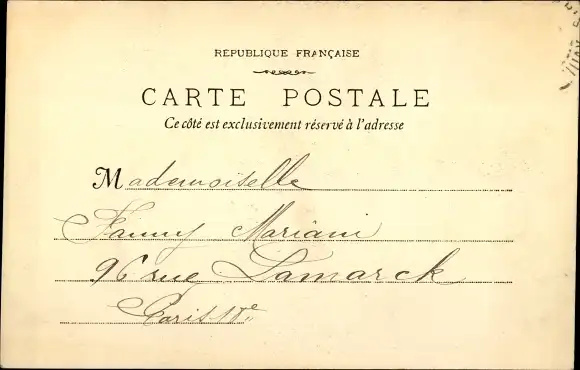 RÉPUBLIQUE FRANÇAISE
CARTE POSTALE
Ce côté est exclusivement réservé à l'adresse
Mademoiselle
Fanny Mariani
96 rue Lamarck
Paris 18e